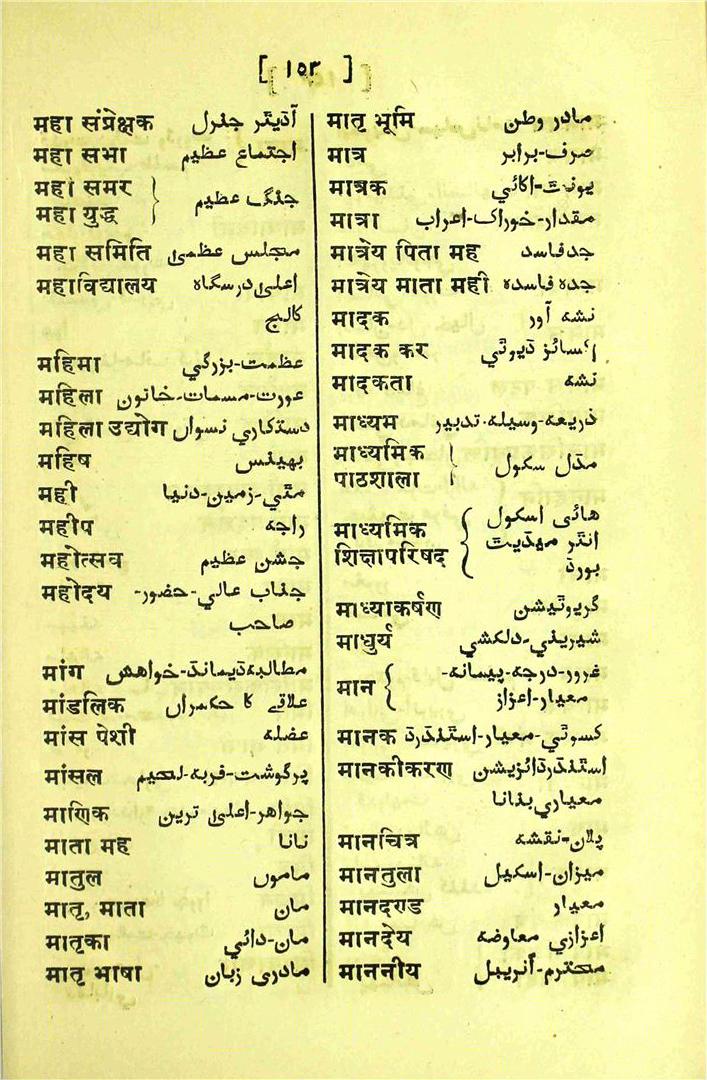 [ ۱۵۳ ]
महा संप्रेक्षक آڈیٹر جنرل
महा सभा اجتماع عظیم
महा समर
महा युद्ध } جنگ عظیم
महा समिति مجلس عظمیٰ
महाविद्यालय اعلیٰ درسگاہ
کالج
महिमा عظمت-بزرگی
महिला عورت-مسمات-خاتون
महिला उद्योग دستکاری نسواں
महिष بھینس
मही مٹی-زمین-دنیا
महीप راجہ
महोत्सव جشن عظیم
महोदय جناب عالی-حضور-
صاحب
मांग مطالبہ ڈیمانڈ-خواهش
मांडलिक علاقے کا حکمراں
मांस पेशी عضلہ
मांसल پرگوشت-فربہ-لحیم
माणिक جواهر-اعلیٰ ترین
माता मह نانا
मातुल ماموں
मातृ, माता ماں
मातृका ماں-دائی
मातृ भाषा مادری زبان
मातृ भूमि مادر وطن
मात्र صرف-برابر
मात्रक یونٹ-اکائی
मात्रा مقدار-خوراک-اعراب
मात्रेय पिता मह جد فاسد
मात्रेय माता मही جدہ فاسدہ
मादक نشہ آور
मादक कर اکسائز ڈیوٹی
मादकता نشہ
माध्यम ذریعہ-وسیلہ-تدبیر
माध्यमिक
पाठशाला } مڈل سکول
माध्यमिक
शिक्षापरिषद { هائی اسکول
انٹر میڈیٹ
بورڈ
माध्याकर्षण گریوٹیشن
माधुर्य شیرینی-دلکشی
मान { غرور-درجہ-پیمانہ-
معیار-اعزاز
मानक کسوٹی-معیار-اسٹنڈرڈ
मानकीकरण اسٹنڈرڈائزیشن
معیاری بنانا
मानचित्र پلان-نقشہ
मानतुला میزان-اسکیل
मानदण्ड معیار
मानदेय اعزازی معاوضہ
माननीय محترم-آنریبل